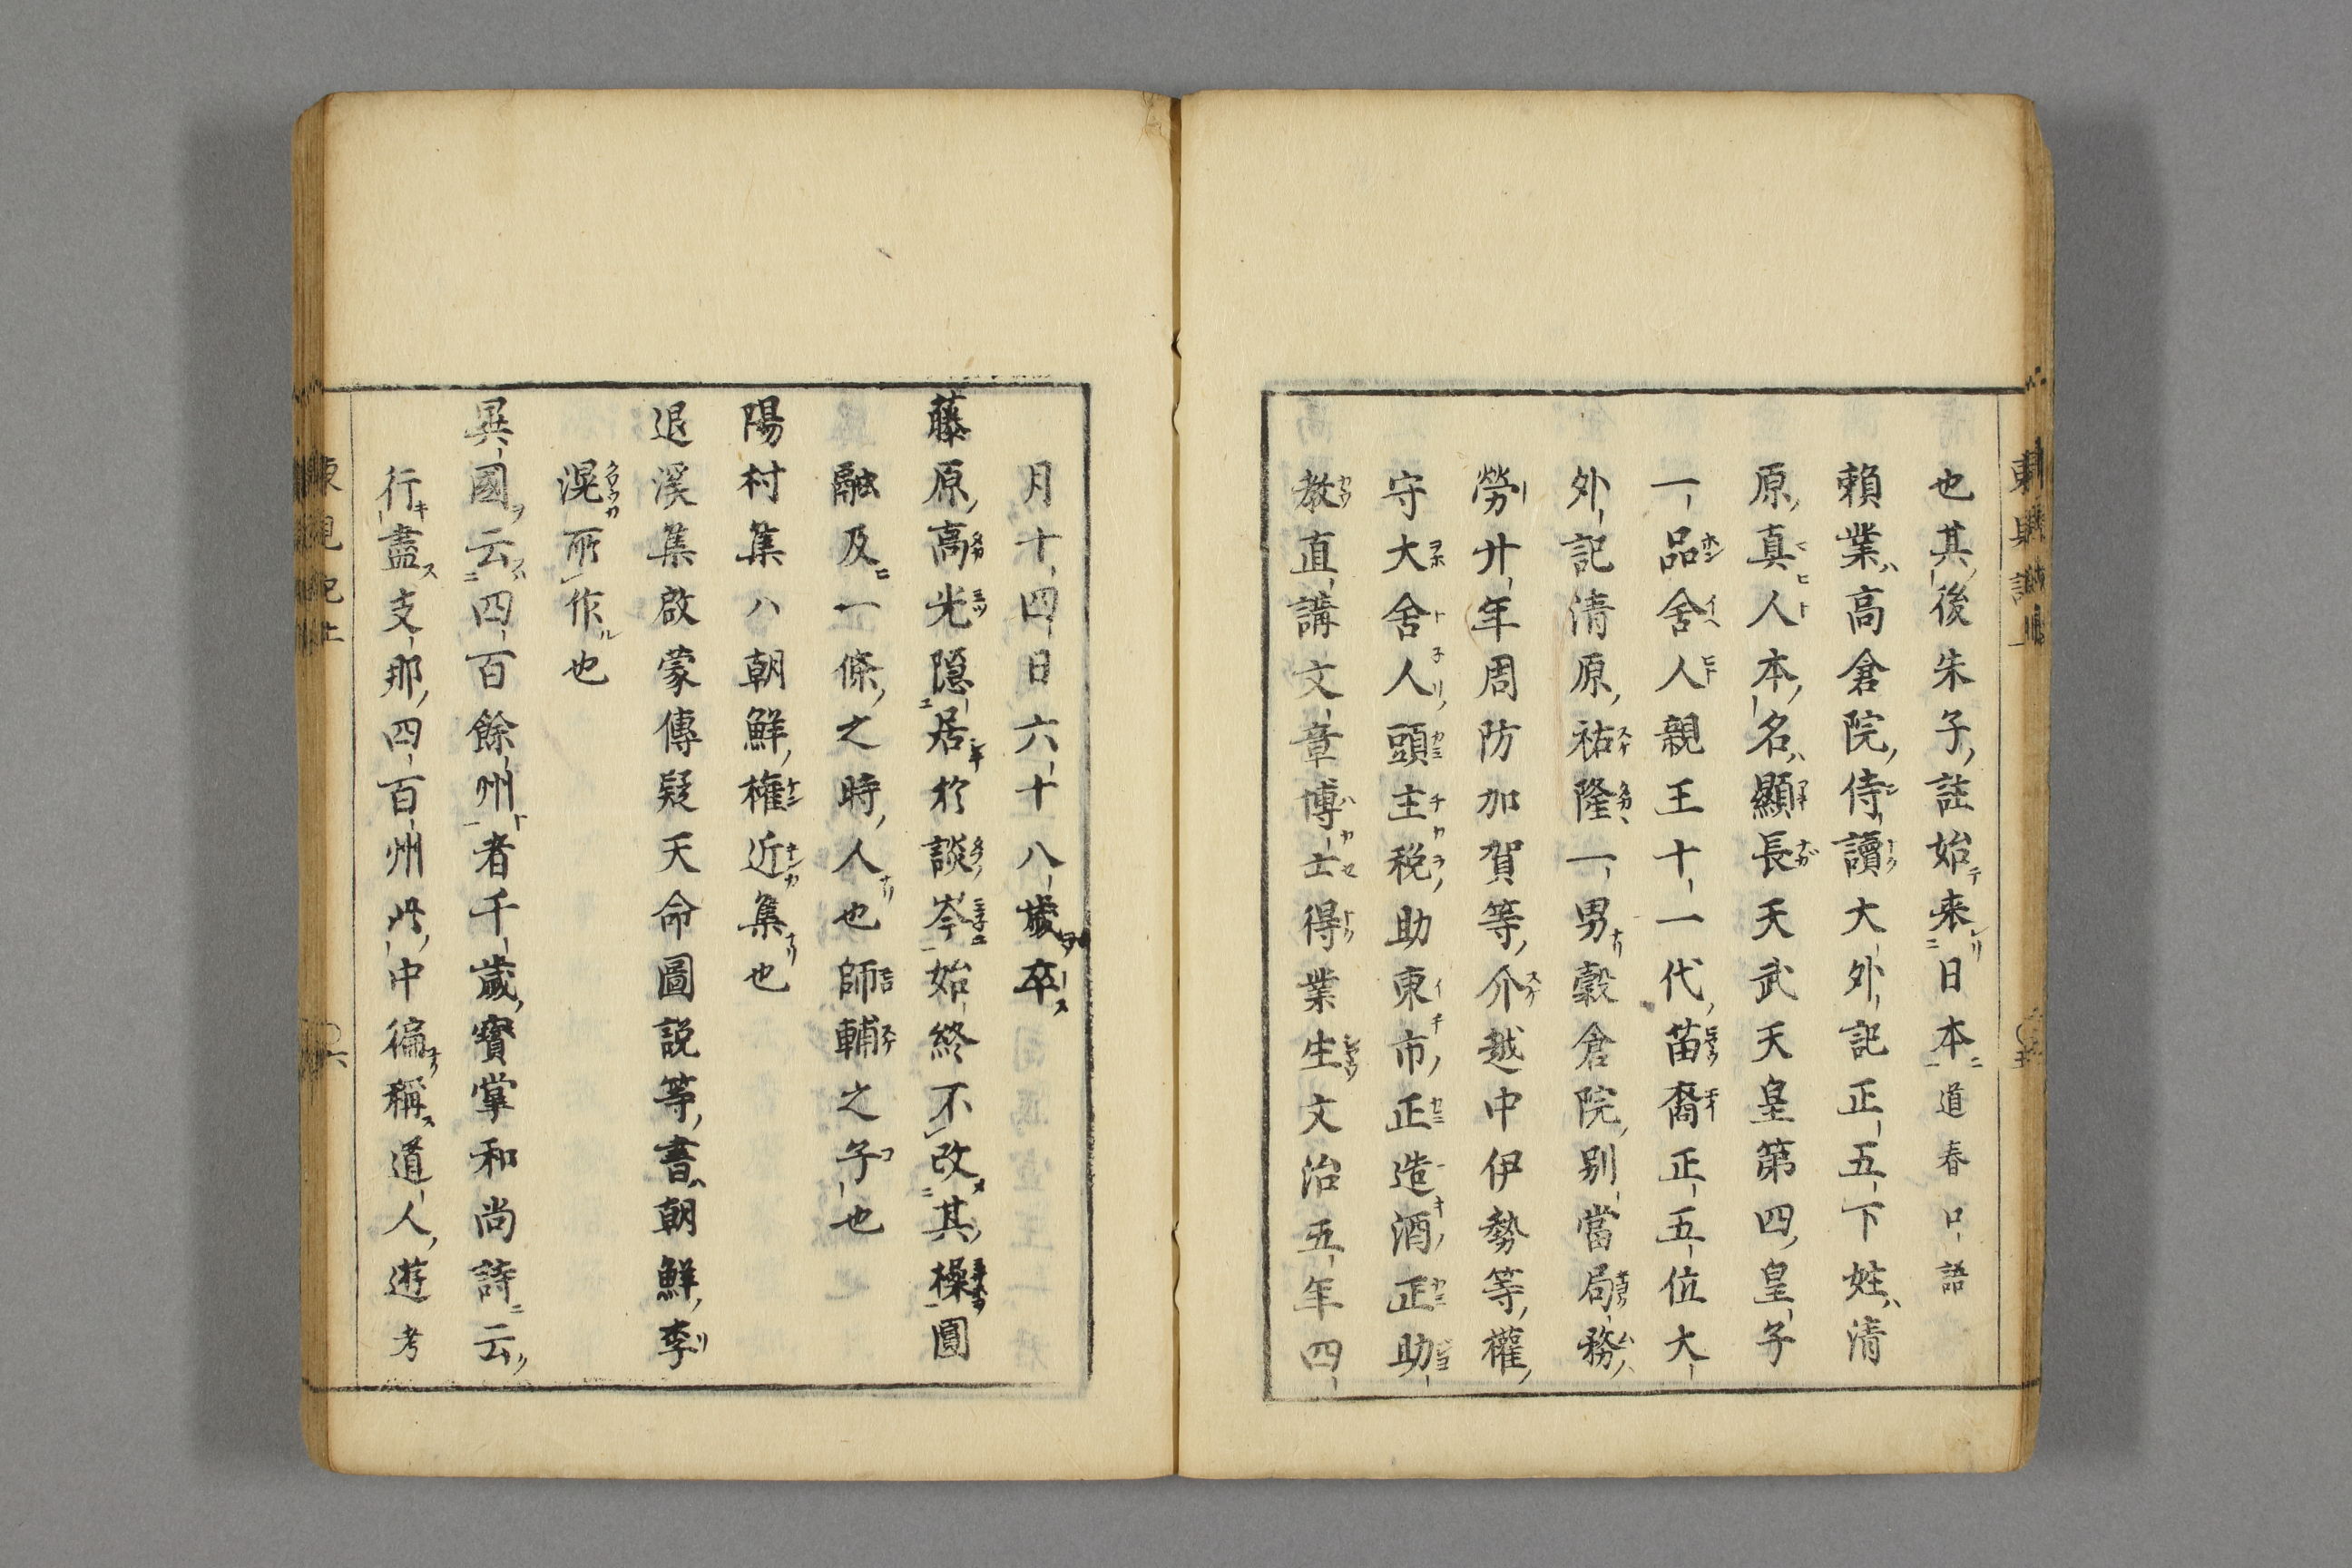 也其後朱子註始来日本道春口語
頼業高倉院侍讀大外記正五下姓清
原真人本名顯長天武天皇第四皇子
一品舍人親王十一代苗裔正五位大
外記清原祐隆一男穀倉院別當局務
勞廾年周防加賀等介越中伊勢等權
守大舍人頭主税助東市正造酒正助
教直講文章博士得業生文治五年四
月十四日六十八歳卒
藤原高光隱居於談岑始終不改其操圓
融及一條之時人也師輔之子也
陽村集ハ朝鮮權近集也
退溪集啟蒙傳疑天命圖説等書朝鮮李
滉所作也
異國云四百餘州者千歳寳掌和尚詩云
行盡支那四百州此中徧稱道人遊考